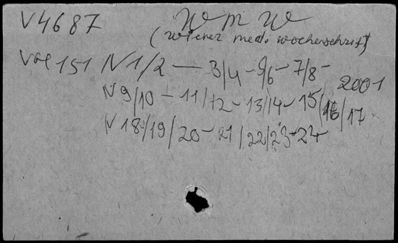 V4687 W m W
(Wiener med. wochenschrift)
Vol 151 N 1/2 — 3/4 - 5/6 - 7/8 - 2001
N 9/10 - 11/12 - 13/14 - 15/16/17
N 18/19/20 - 21/22/23-24